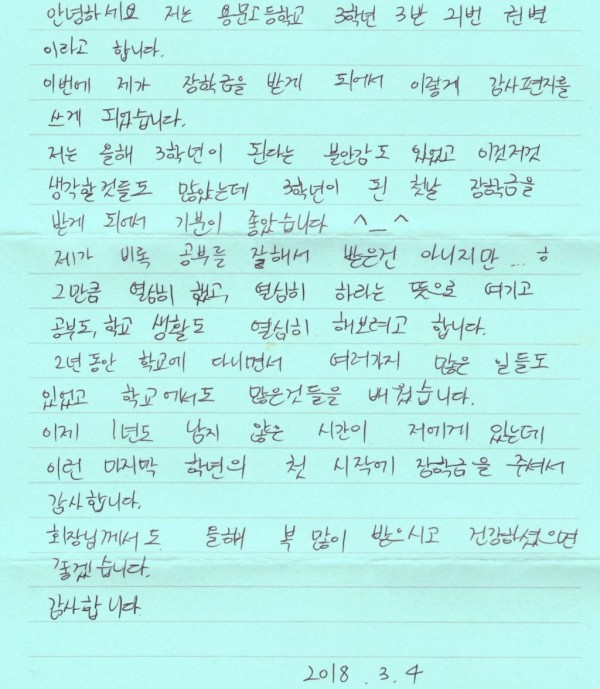 안녕하세요 저는 용문고등학교 3학년 3반 21번 권별
이라고 합니다.
이번에 제가 장학금을 받게 되어서 이렇게 감사편지를
쓰게 되었습니다.
저는 올해 3학년이 된다는 불안감도 있었고 이것저것
생각할것들도 많았는데 3학년이 된 첫날 장학금을
받게 되어서 기분이 좋았습니다 ^_^
제가 비록 공부를 잘해서 받은건 아니지만...ㅎ
그만큼 열심히 했고, 열심히 하라는 뜻으로 여기고
공부도, 학교 생활도 열심히 해보려고 합니다.
2년 동안 학교에 다니면서 여러가지 많은 일들도
있었고 학교에서도 많은것들을 배웠습니다.
이제 1년도 남지 않은 시간이 저에게 있는데
이런 마지막 학년의 첫 시작에 장학금을 주셔서
감사합니다.
회장님께서도 올해 복 많이 받으시고 건강하셨으면
좋겠습니다.
감사합니다
2018. 3. 4